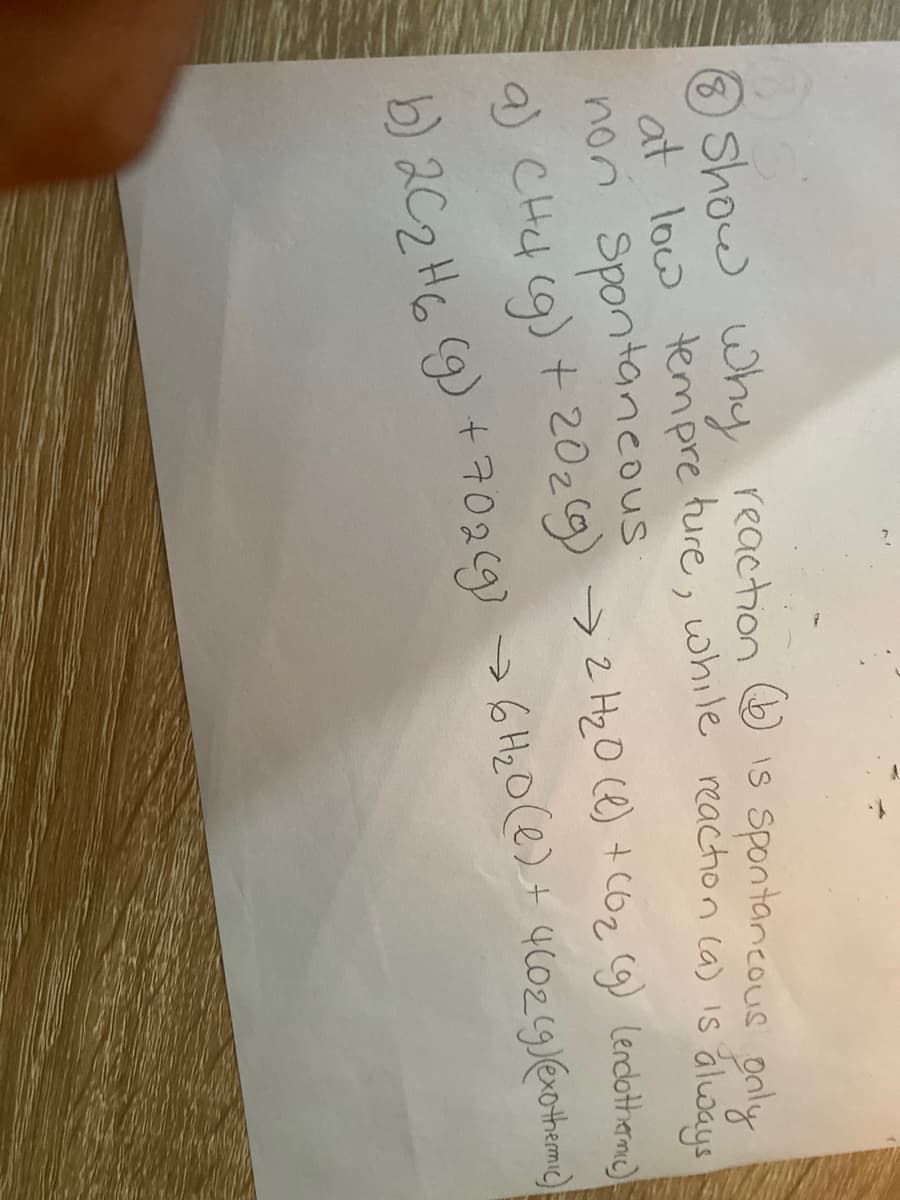 ⑧ Show why reaction (b) is spontaneous only
at low tempreture, while reaction (a) is always
non spontaneous
a) CH4 (g) + 2O2 (g) → 2 H2O (l) + CO2 (g) (endothermic)
b) 2C2H6 (g) + 7O2 (g) → 6H2O (l) + 4CO2 (g) (exothermic)